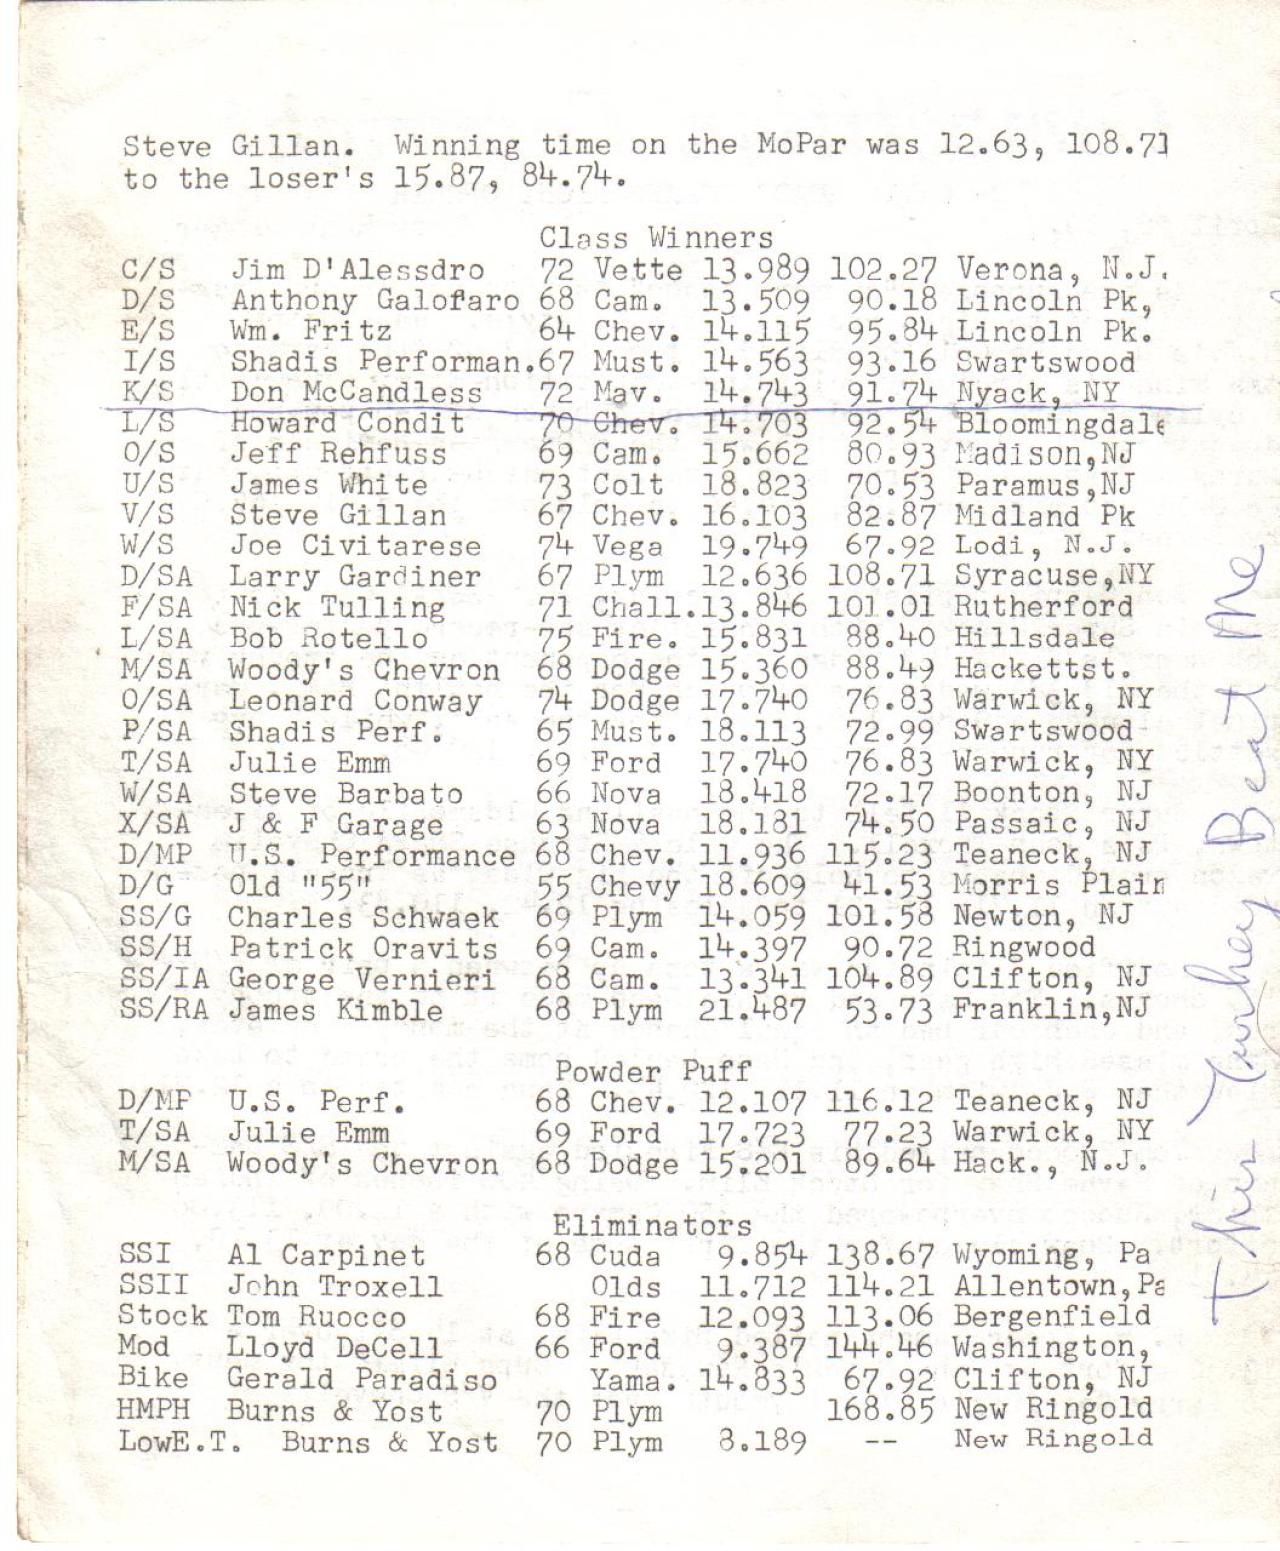 Steve Gillan. Winning time on the MoPar was 12.63, 108.71
to the loser's 15.87, 84.74.
Class Winners
C/S Jim D'Alessdro 72 Vette 13.989 102.27 Verona, N.J.
D/S Anthony Galofaro 68 Cam. 13.509 90.18 Lincoln Pk,
E/S Wm. Fritz 64 Chev. 14.115 95.84 Lincoln Pk.
I/S Shadis Performan. 67 Must. 14.563 93.16 Swartswood
K/S Don McCandless 72 Mav. 14.743 91.74 Nyack, NY
L/S Howard Condit 70 Chev. 14.703 92.54 Bloomingdale
O/S Jeff Rehfuss 69 Cam. 15.662 80.93 Madison,NJ
U/S James White 73 Colt 18.823 70.53 Paramus,NJ
V/S Steve Gillan 67 Chev. 16.103 82.87 Midland Pk
W/S Joe Civitarese 74 Vega 19.749 67.92 Lodi, N.J.
D/SA Larry Gardiner 67 Plym 12.636 108.71 Syracuse,NY
F/SA Nick Tulling 71 Chall. 13.846 101.01 Rutherford
L/SA Bob Rotello 75 Fire. 15.831 88.40 Hillsdale
M/SA Woody's Chevron 68 Dodge 15.360 88.49 Hackettst.
O/SA Leonard Conway 74 Dodge 17.740 76.83 Warwick, NY
P/SA Shadis Perf. 65 Must. 18.113 72.99 Swartswood
T/SA Julie Emm 69 Ford 17.740 76.83 Warwick, NY
W/SA Steve Barbato 66 Nova 18.418 72.17 Boonton, NJ
X/SA J & F Garage 63 Nova 18.181 74.50 Passaic, NJ
D/MP U.S. Performance 68 Chev. 11.936 115.23 Teaneck, NJ
D/G Old "55" 55 Chevy 18.609 41.53 Morris Plain
SS/G Charles Schwaek 69 Plym 14.059 101.58 Newton, NJ
SS/H Patrick Oravits 69 Cam. 14.397 90.72 Ringwood
SS/IA George Vernieri 68 Cam. 13.341 104.89 Clifton, NJ
SS/RA James Kimble 68 Plym 21.487 53.73 Franklin,NJ
Powder Puff
D/MP U.S. Perf. 68 Chev. 12.107 116.12 Teaneck, NJ
T/SA Julie Emm 69 Ford 17.723 77.23 Warwick, NY
M/SA Woody's Chevron 68 Dodge 15.201 89.64 Hack., N.J.
Eliminators
SSI Al Carpinet 68 Cuda 9.854 138.67 Wyoming, Pa
SSII John Troxell Olds 11.712 114.21 Allentown,Pa
Stock Tom Ruocco 68 Fire 12.093 113.06 Bergenfield
Mod Lloyd DeCell 66 Ford 9.387 144.46 Washington,
Bike Gerald Paradiso Yama. 14.833 67.92 Clifton, NJ
HMPH Burns & Yost 70 Plym 168.85 New Ringold
LowE.T. Burns & Yost 70 Plym 8.189 -- New Ringold
This Turkey Beat Me